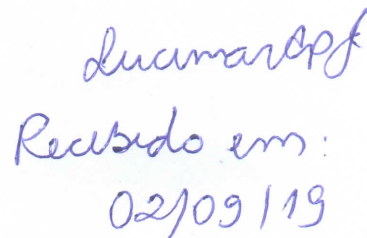 Lucimar Ap f
Recebido em:
02/09/19